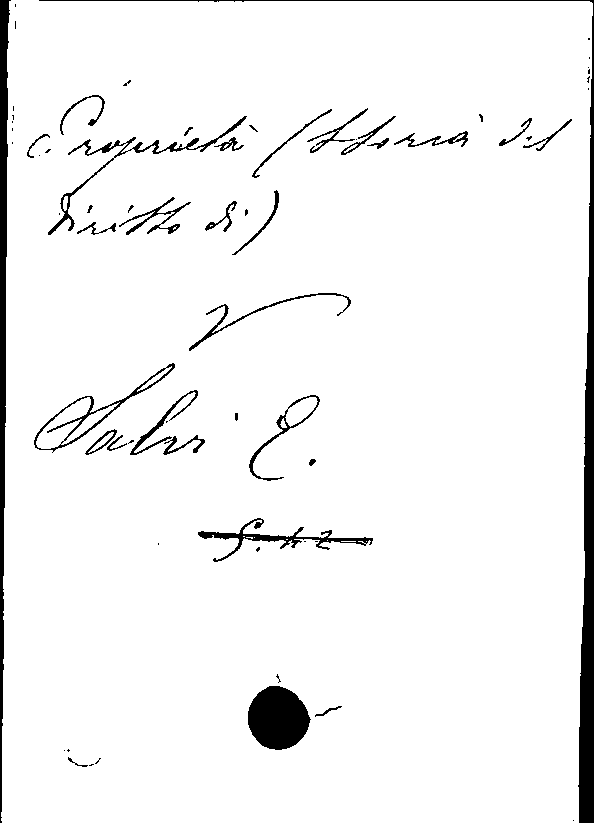 Proprietà (Storia del
diritto di)
V
Salvi E.